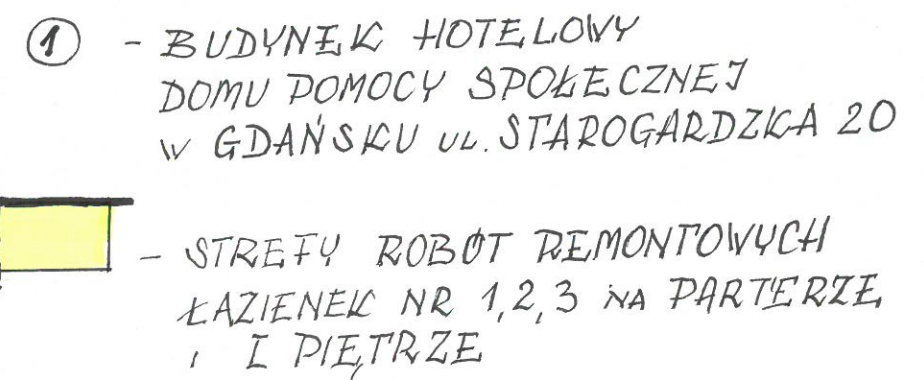 1 - BUDYNEK HOTELOWY
DOMU POMOCY SPOŁECZNEJ
W GDAŃSKU UL. STAROGARDZKA 20
- STREFY ROBÓT REMONTOWYCH
ŁAZIENEK NR 1,2,3 NA PARTERZE
I I PIĘTRZE